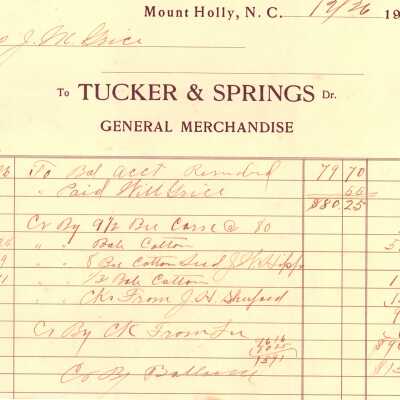 Mount Holly, N. C. 12/26 19
J. M. Grice
To TUCKER & SPRINGS Dr.
GENERAL MERCHANDISE
To Bal acct Rendrd 79 70
" Paid Will Grice 55
$80.25
Cr By 9½ Bu Corn @ 80
" " Bale Cotton
" " 8 Bu Cotton Seed
" " ½ Bale Cotton
" " Ck From J. H.
Cr By Ck From
1591
Cr By Ballance